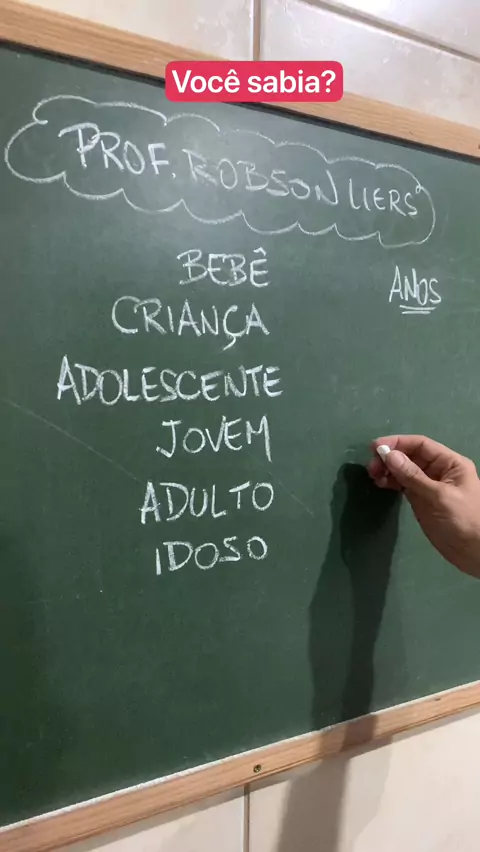 Você sabia?
PROF. ROBSON LIERS
BEBÊ
ANOS
CRIANÇA
ADOLESCENTE
JOVEM
ADULTO
IDOSO